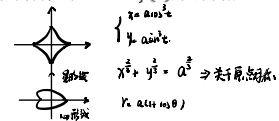 x = a cos³t
y = a sin³t.
x^{2/3} + y^{2/3} = a^{2/3} ⇒ 关于原点对称.
星形线
r = a(1+cosθ)
心形线